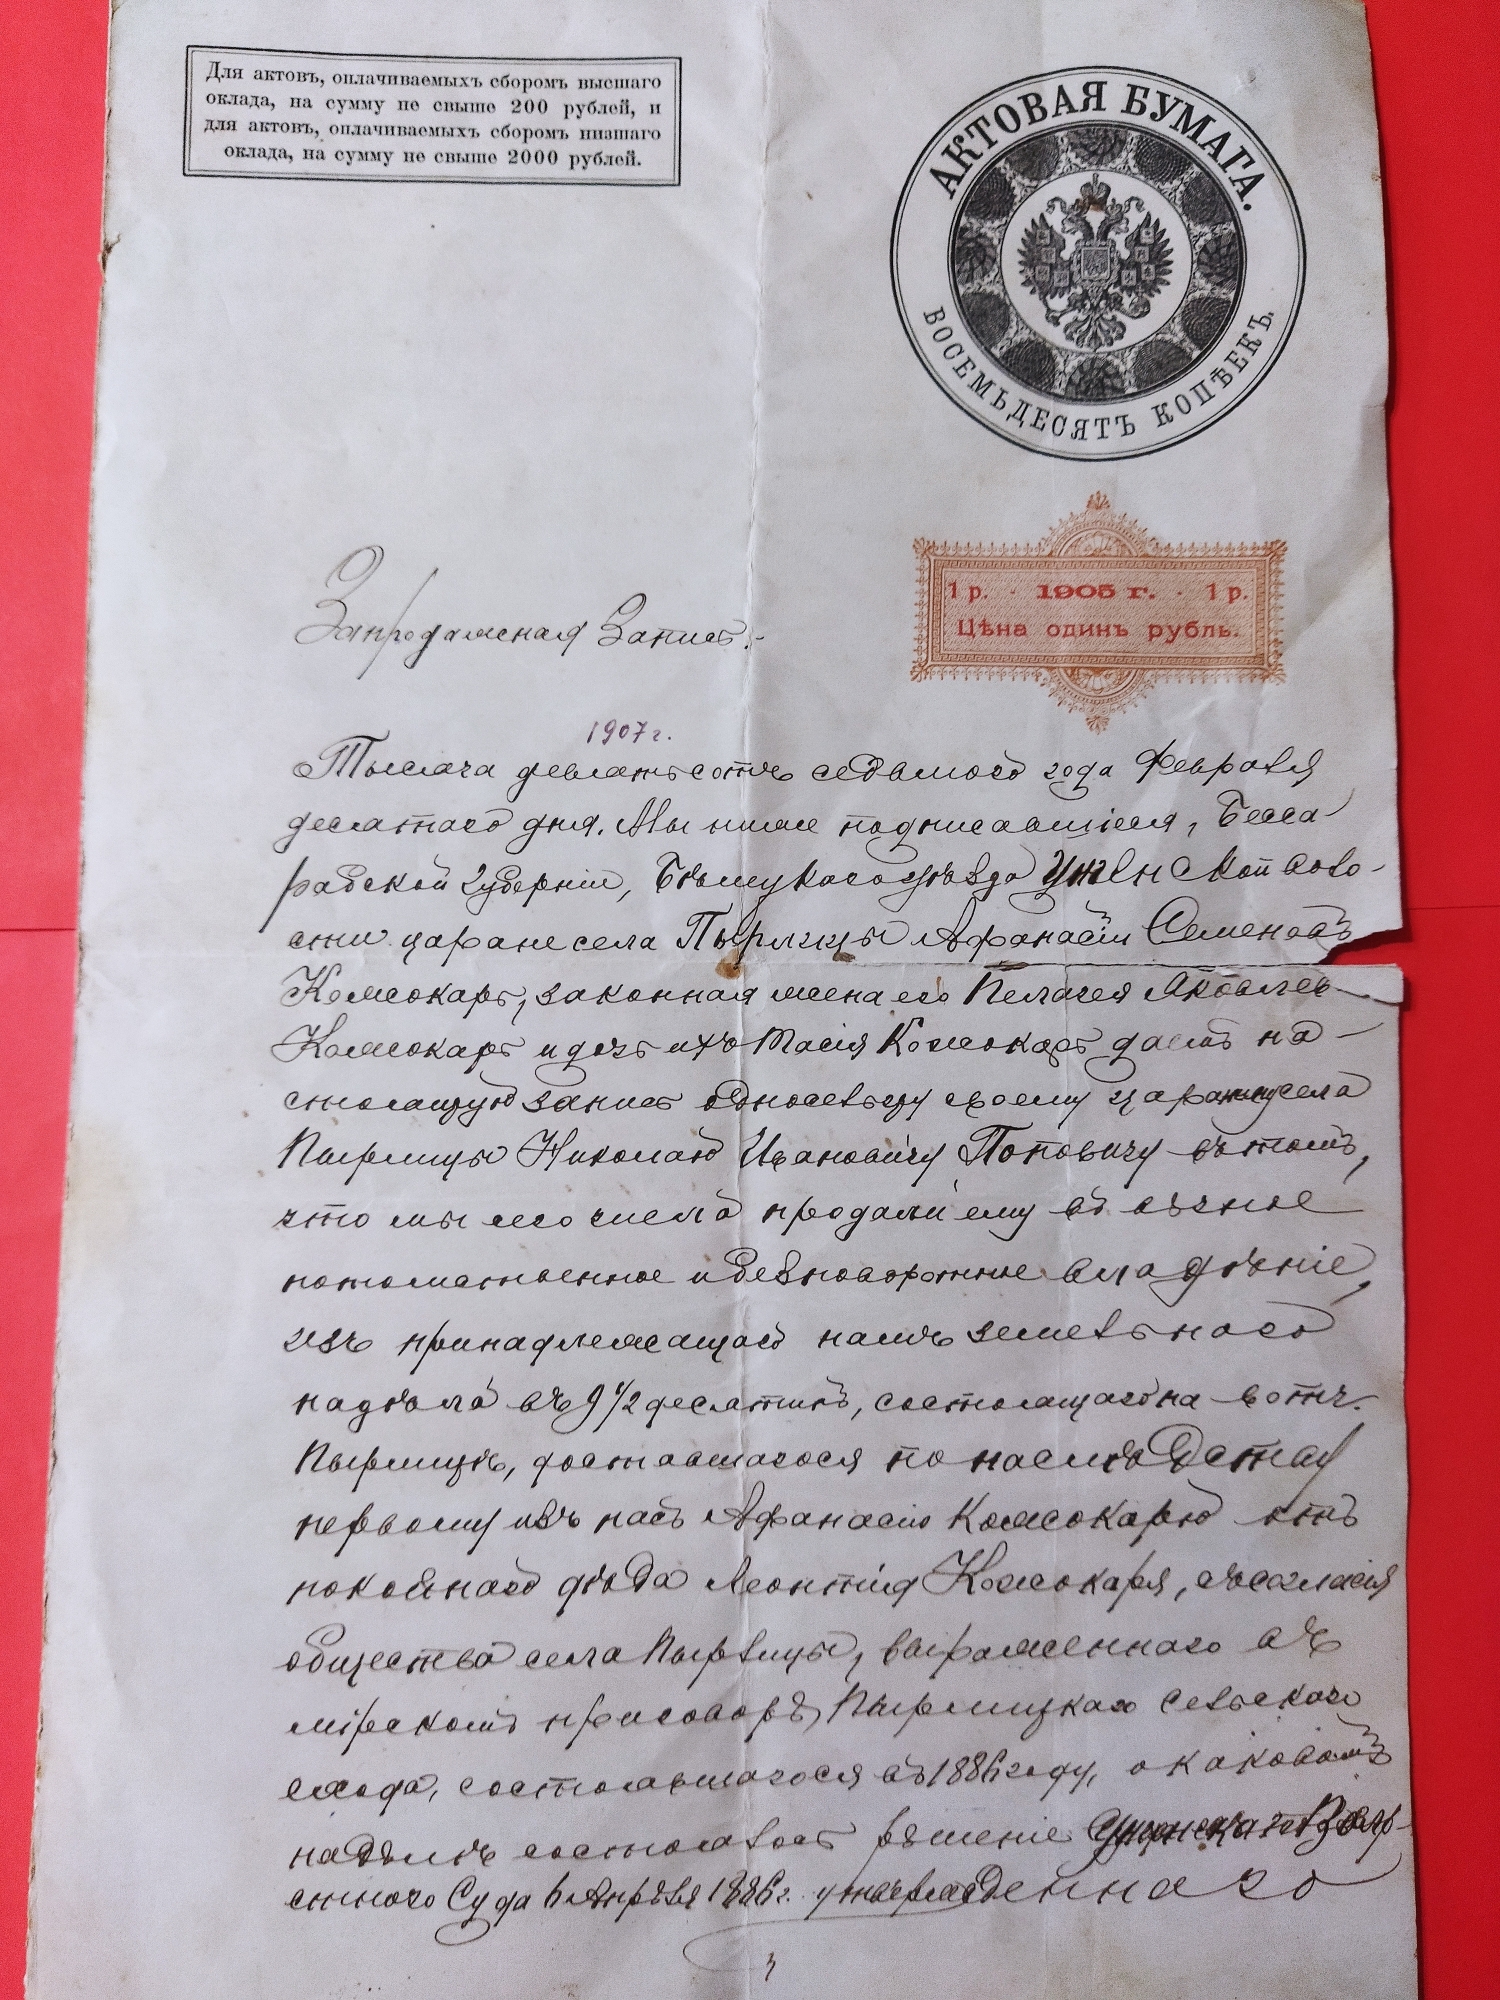 Для актовъ, оплачиваемыхъ сборомъ высшаго
оклада, на сумму не свыше 200 рублей, и
для актовъ, оплачиваемыхъ сборомъ низшаго
оклада, на сумму не свыше 2000 рублей.
АКТОВАЯ БУМАГА.
ВОСЕМЬДЕСЯТЪ КОПѢЕКЪ.
1 р. · 1905 г. · 1 р.
Цѣна одинъ рубль.
Запродажная Запись.-
1907 г.
Тысяча девятьсотъ седьмого года Февраля
десятаго дня. Мы ниже подписавшіеся, Бесса-
рабской губерніи, Бѣлецкаго уѣзда Унгенской воло-
сти царане села Пырлицы Афанасій Семеновъ
Комсокарь, законная жена его Пелагея Яковлев-
Комсокарь и дочь ихъ Тасія Комсокарь даемъ на-
стоящую запись односельцу своему царанину села
Пырлицы Николаю Ивановичу Поповичу въ томъ,
что мы сего числа продали ему въ вѣчное
потомственное и безповоротное владѣніе,
изъ принадлежащаго намъ земельнаго
надѣла въ 9 1/2 десятинъ, состоящаго на вотч.
Пырлицѣ, доставшагося по наслѣдству
первому изъ насъ Афанасію Комсокарю отъ
покойнаго дѣда Леонтія Комсокаря, съ согласія
общества села Пырлицы, выраженнаго въ
мірскомъ приговорѣ, Пырлицкаго сельскаго
схода, состоявшагося въ 1886 году, о каковомъ
надѣлѣ состоялось рѣшеніе Унгенскаго Воло-
стного Суда 6 Апрѣля 1886 г. утвержденнаго